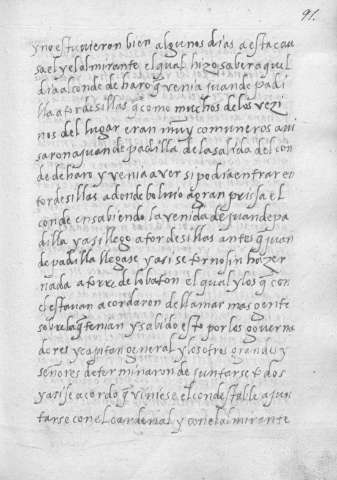 91.
y no estuvieron bien algunos dias a esta cau
sa el y el almirante el qual hizo saber aquel
dia al conde de haro q̄ venia juan de padi
lla a tordesillas q̄ como muchos de los vezi
nos del lugar eran muy comuneros avi
saron a juan de padilla de la salida del con
de de haro y venia a ver si podia entrar en
tordesillas a donde bolvio a gran prissa el
conde en sabiendo la venida de juan de pa
dilla y asi llego a tordesillas antes q̄ juan
de padilla llegase y asi se torno sin hazer
nada a torre de lobaton el qual y los q̄ con
el estavan acordaron de llamar mas gente
sobre la q̄ tenian y sabido esto por los governa
dores y capitan general y los otros grandes y
señores determinaron de juntarse todos
y asi se acordo q̄ viniese el condestable a jun
tarse con el cardenal y con el almirante